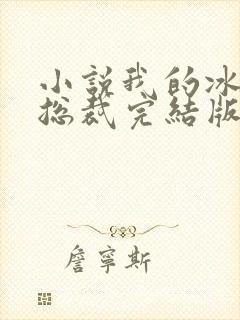 小說我的冰
总裁完結版
詹寧斯